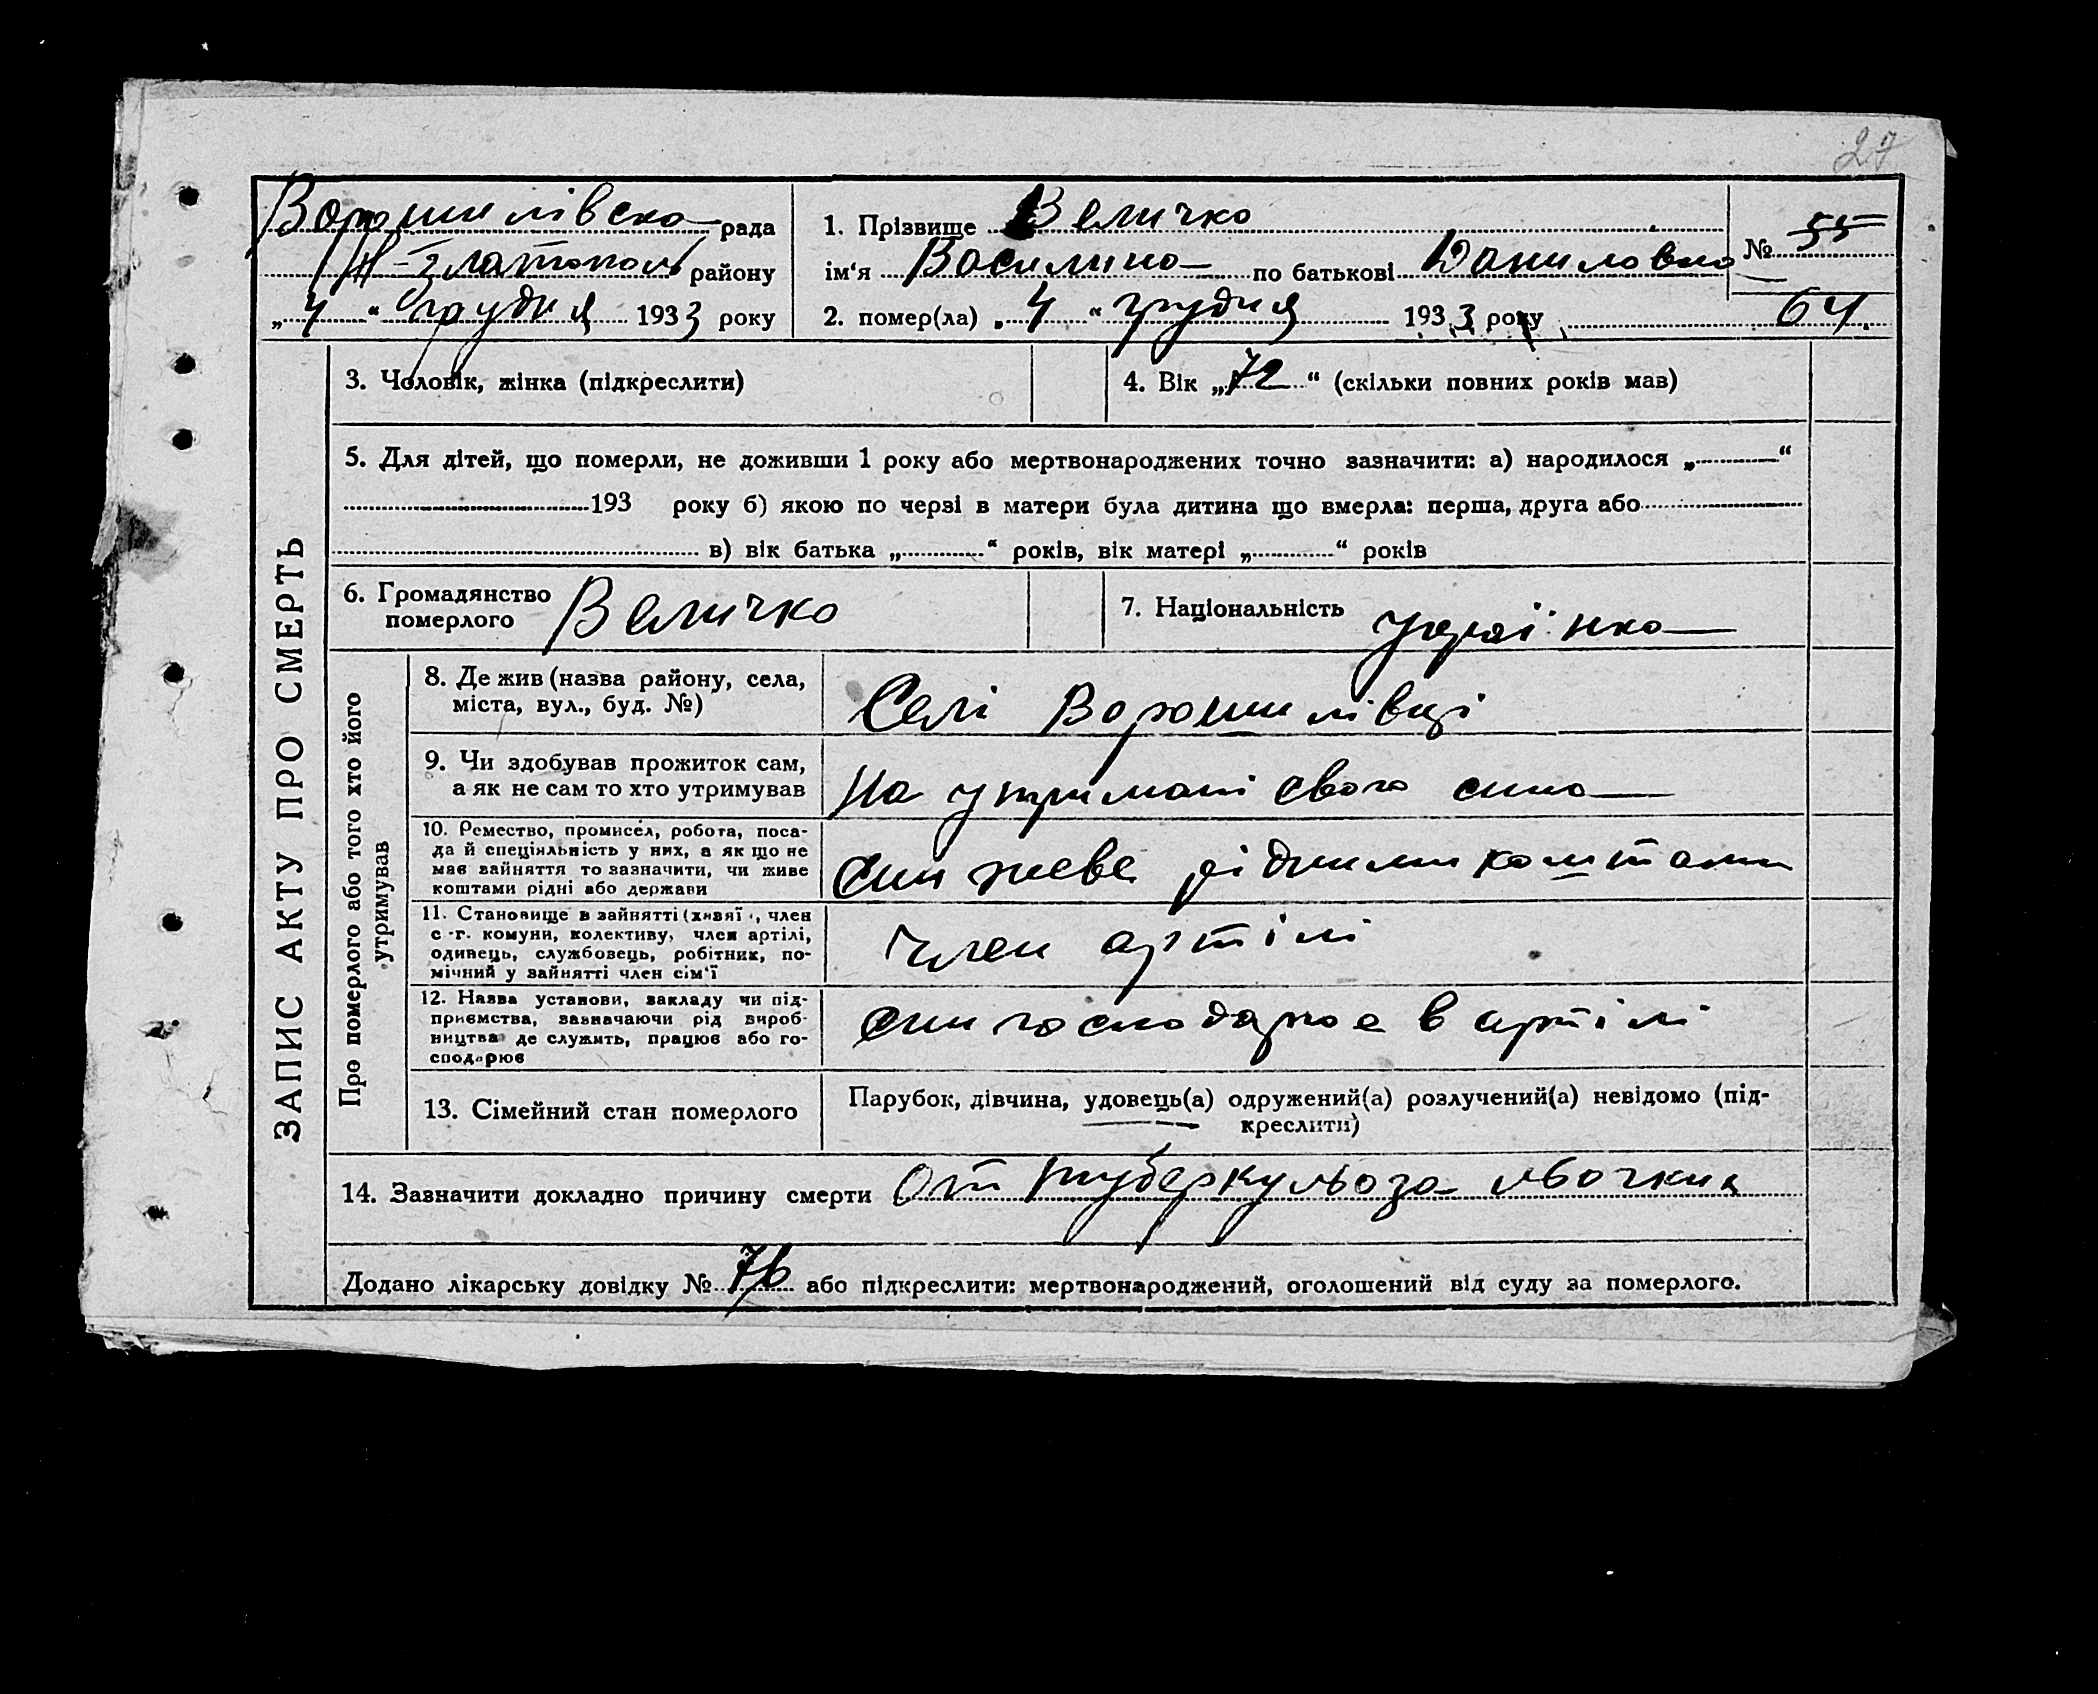 27
Ворошилівська рада
Н-Златопол району
„4“ грудня 1933 року
1. Прізвище Величко
ім'я Василина по батькові Даниловна
№ 55
2. помер(ла) „4“ грудня 1933 року 64.
ЗАПИС АКТУ ПРО СМЕРТЬ
3. Чоловік, жінка (підкреслити)
4. Вік „72“ (скільки повних років мав)
5. Для дітей, що померли, не доживши 1 року або мертвонароджених точно зазначити: а) народилося „ “
193 року б) якою по черзі в матери була дитина що вмерла: перша, друга або
в) вік батька „ “ років, вік матері „ “ років
6. Громадянство
померлого Величко
7. Національність Українка
Про померлого або того хто його
утримував
8. Де жив (назва району, села,
міста, вул., буд. №)
Селі Ворошилівці
9. Чи здобував прожиток сам,
а як не сам то хто утримував
На утримані свого сина
10. Ремество, промисел, робота, поса-
да й спеціяльність у них, а як що не
має зайняття то зазначити, чи живе
коштами рідні або держави
син живе рідними коштами
11. Становище в зайнятті (хазяї , член
с -г. комуни, колективу, член артілі,
одинець, службовець, робітник, по-
мічний у зайнятті член сім'ї
член артілі
12. Назва установи, закладу чи під-
приємства, зазначаючи рід вироб-
ництва де служить, працює або го-
сподарює
син господарює в артілі
13. Сімейний стан померлого
Парубок, дівчина, удовець(а) одружений(а) розлучений(а) невідомо (під-
креслити)
14. Зазначити докладно причину смерти От туберкульоза льочких
Додано лікарську довідку № 76 або підкреслити: мертвонароджений, оголошений від суду за померлого.